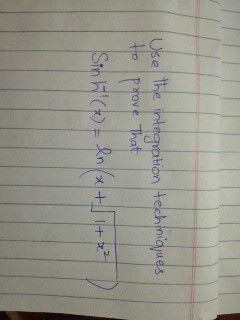 Use the integration techiniques
to prove that
Sinh⁻¹(x) = ln(x + √1 + x²)